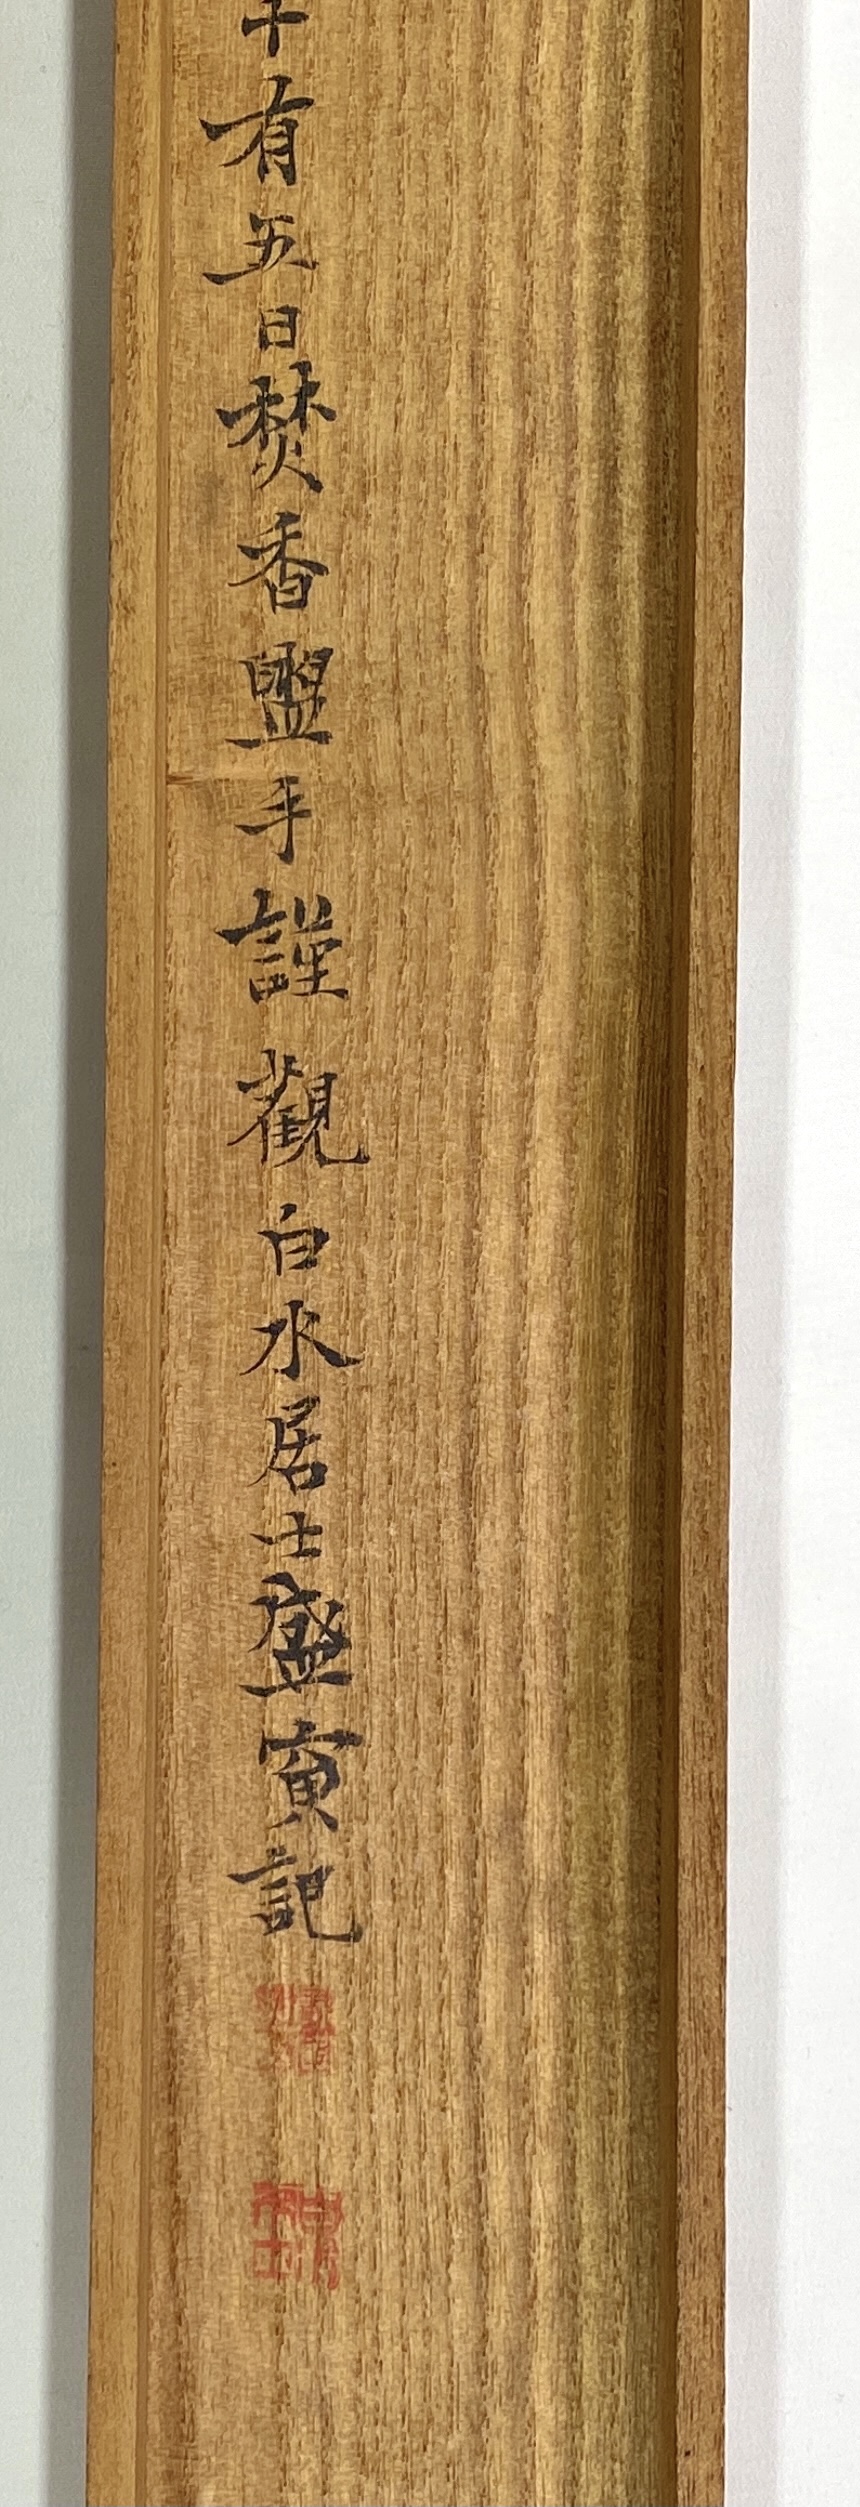 十有五日焚香盥手謹觀白水居士盛寅記